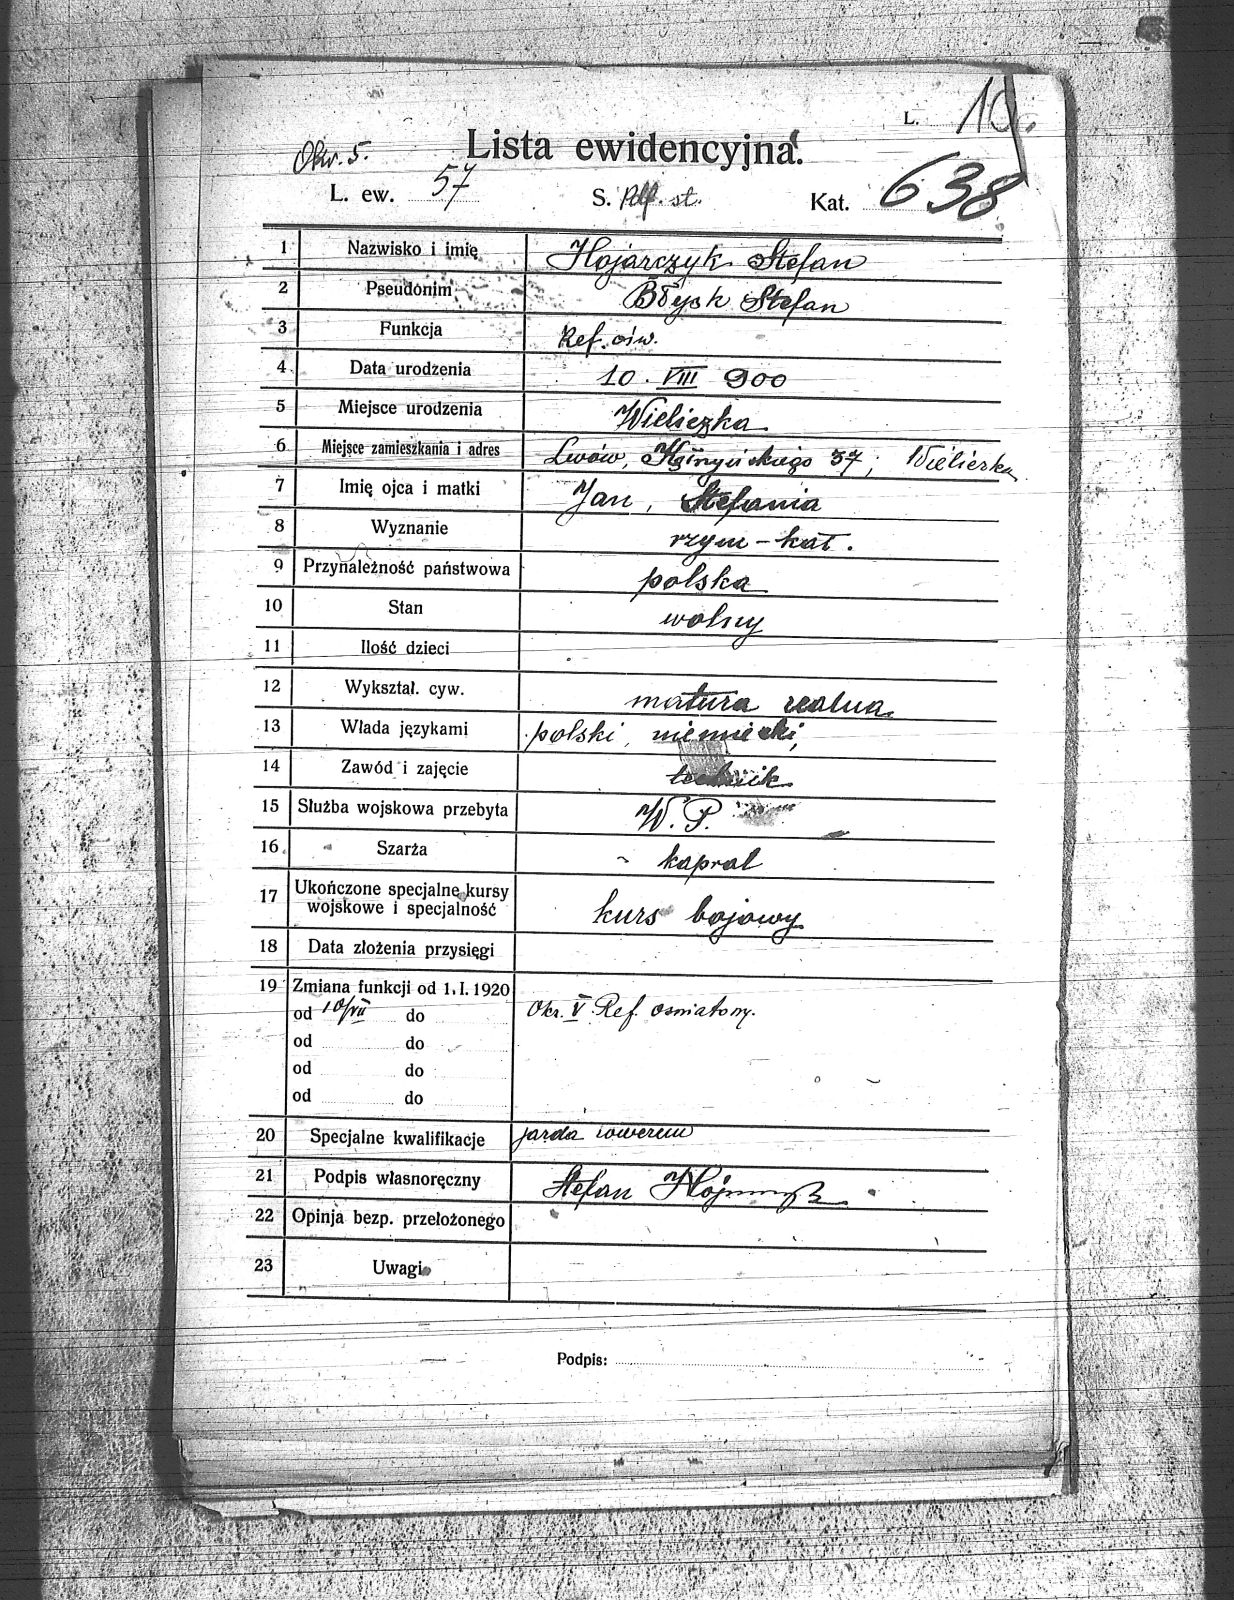 L. 10.
Okr. 5.
Lista ewidencyjna.
L. ew. 57 S. st. Kat. 638
1 Nazwisko i imię Hojarczyk Stefan
2 Pseudonim Błysk Stefan
3 Funkcja Ref. ośw.
4 Data urodzenia 10. VIII 900
5 Miejsce urodzenia Wieliczka
6 Miejsce zamieszkania i adres Lwów, 37; Wieliczka
7 Imię ojca i matki Jan, Stefania
8 Wyznanie rzym-kat.
9 Przynależność państwowa polska
10 Stan wolny
11 Ilość dzieci
12 Wykształ. cyw. matura realna
13 Włada językami polski, niemiecki,
14 Zawód i zajęcie technik
15 Służba wojskowa przebyta W. P.
16 Szarża kapral
17 Ukończone specjalne kursy
wojskowe i specjalność kurs bojowy
18 Data złożenia przysięgi
19 Zmiana funkcji od 1. I. 1920
od 10/VII do Okr. V Ref. oświatowy.
od do
od do
od do
20 Specjalne kwalifikacje jazda rowerem
21 Podpis własnoręczny Stefan Hojarczyk
22 Opinja bezp. przełożonego
23 Uwagi
Podpis: